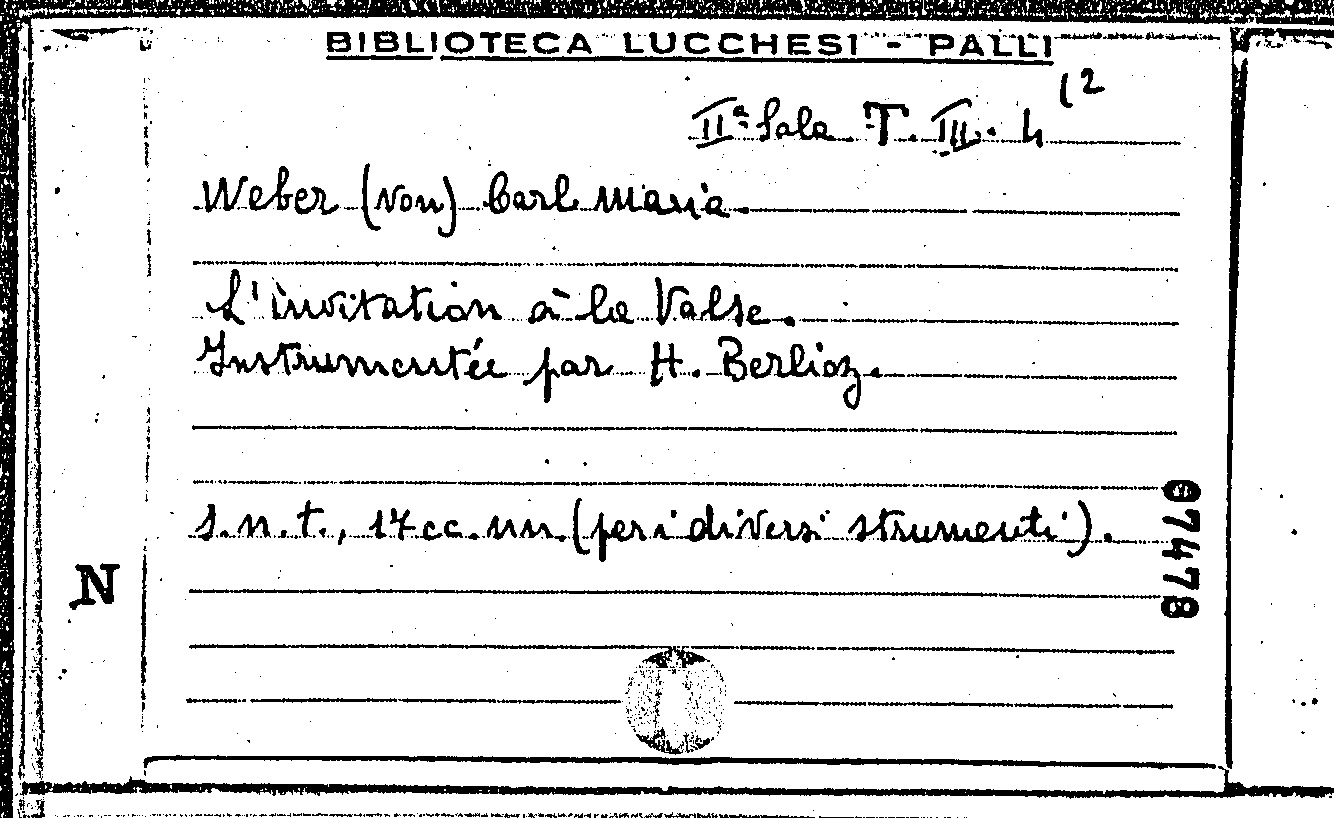 BIBLIOTECA LUCCHESI - PALLI
IIª Sala T. III. 4 (2
Weber (von) Carl Maria.
L'invitation à la Valse.
Instrumentée par H. Berlioz.
S.n.t., 17 cc. nn. (per i diversi strumenti).
07478
N